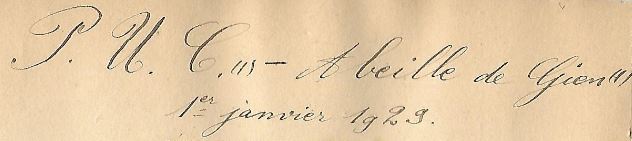 P. U. C. (1) - Abeille de Gien (1)
1er janvier 1929.